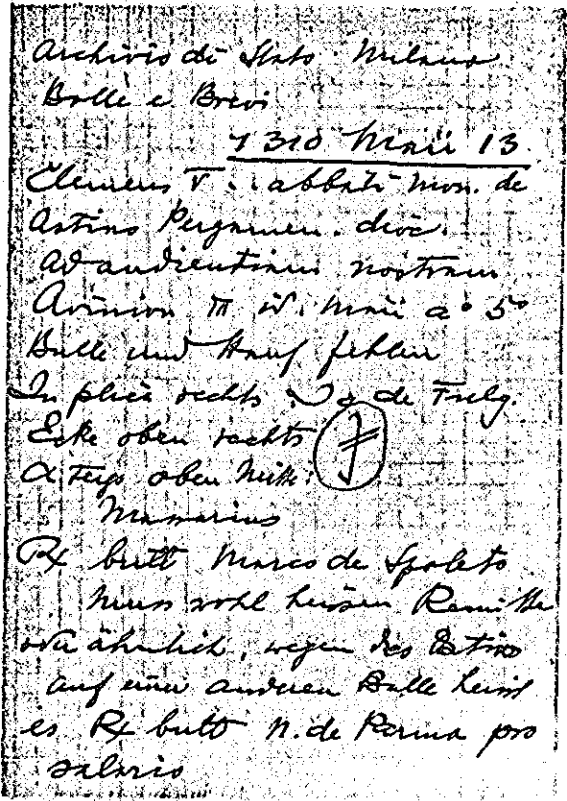 Archivio di Stato Milano
Bolle e Brevi
1310 Maii 13
Clemens V. abbati mon. de
Astino Pergamen. dioc.
Ad audientiam nostram
Avinion III id. Maii a° 5°
Bulle und Hanf fehlen
In plica rechts de Fulg.
Ecke oben rechts
A tergo oben Mitte:
Mamarius
Rx butt Marco de Spoleto
Muss wohl heissen Remitte
oder ähnlich, wegen des Dativs
auf einer anderen Bulle heisst
es Rx butt N. de Parma pro
salario